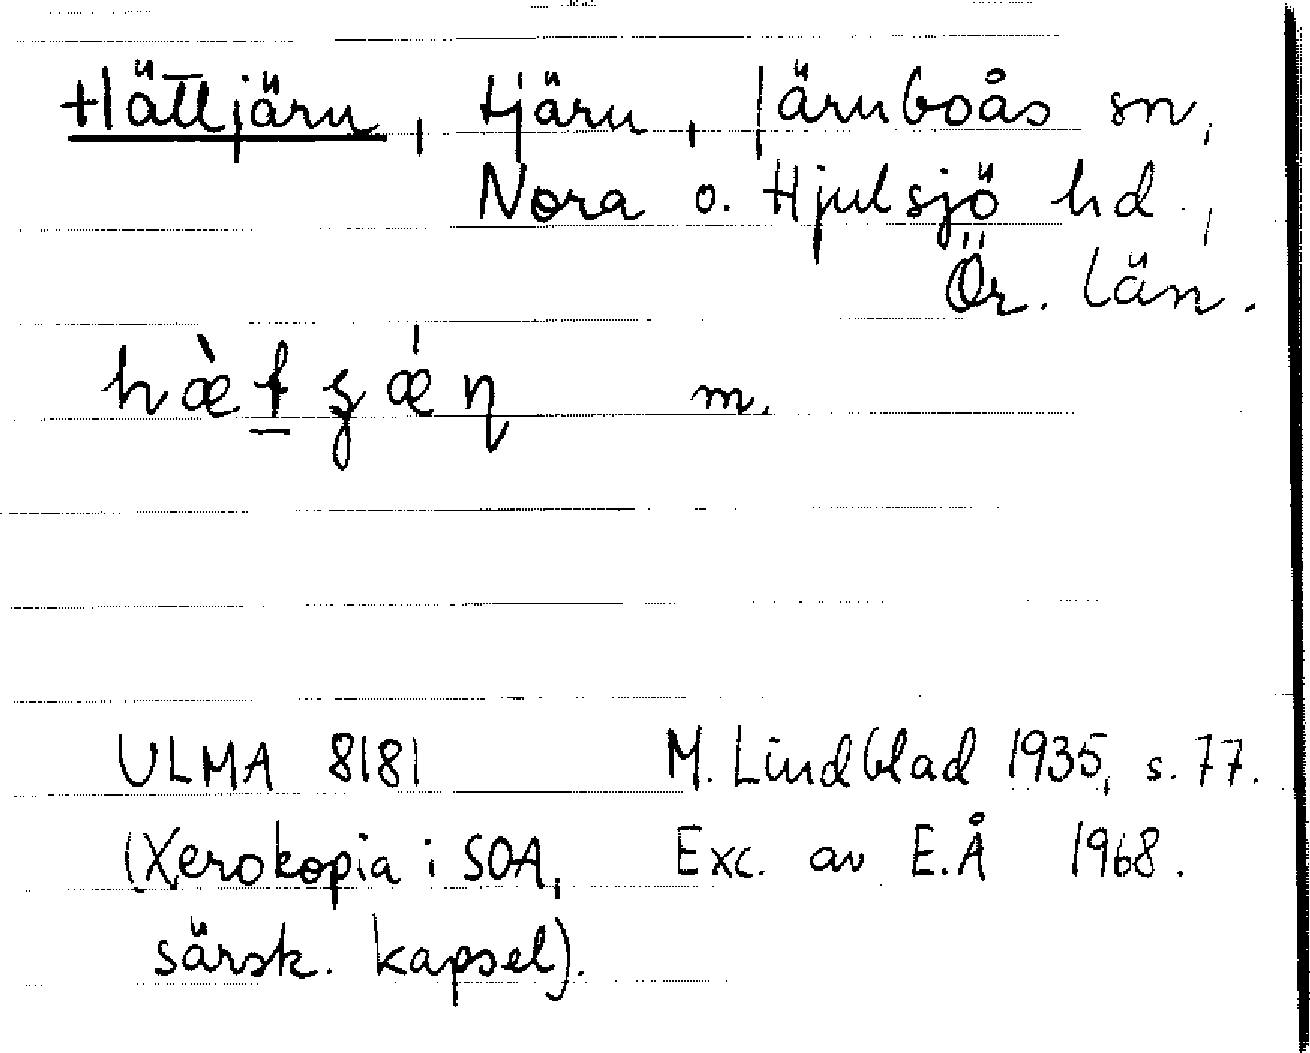 Hättjärn, tjärn, Järnboås sn,
Nora o. Hjulsjö hd.,
Ör. län.
hæ̀t̠ʓǽꞃ m.
ULMA 8181 M. Lindblad 1935, s. 77.
(Xerokopia i SOA, Exc. av E.Å 1968.
särsk. kapsel).